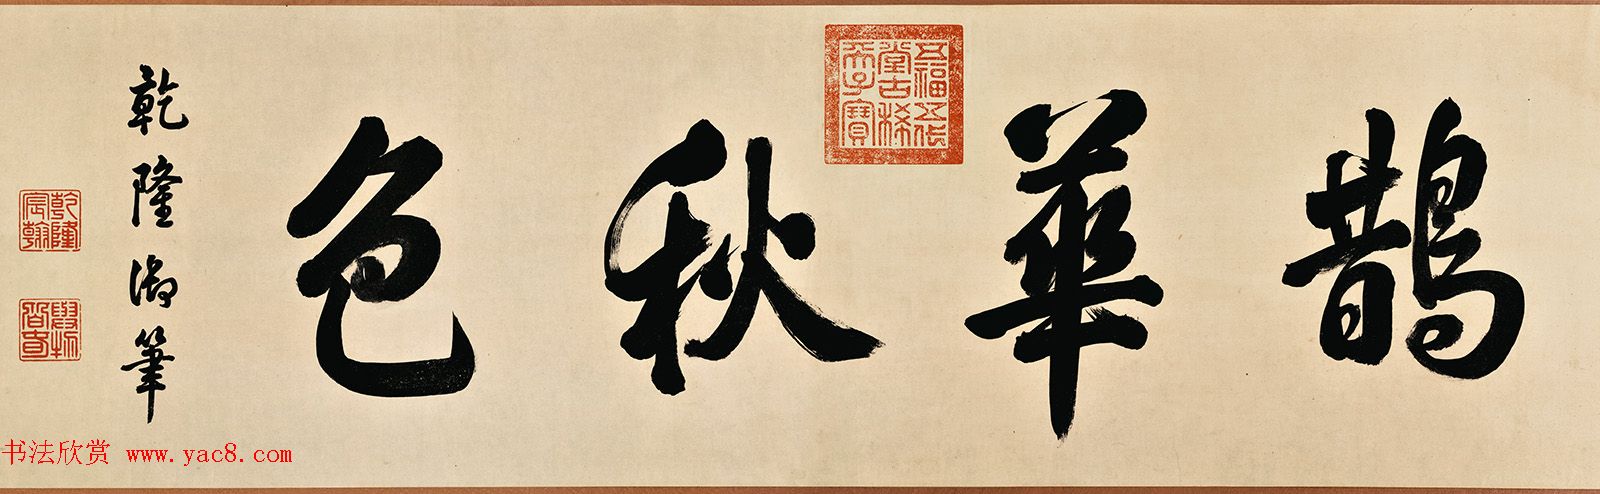 鵲華秋色
乾隆御筆
五福五代
堂古稀
天子寶
乾隆
宸翰
书法欣赏 www.yac8.com